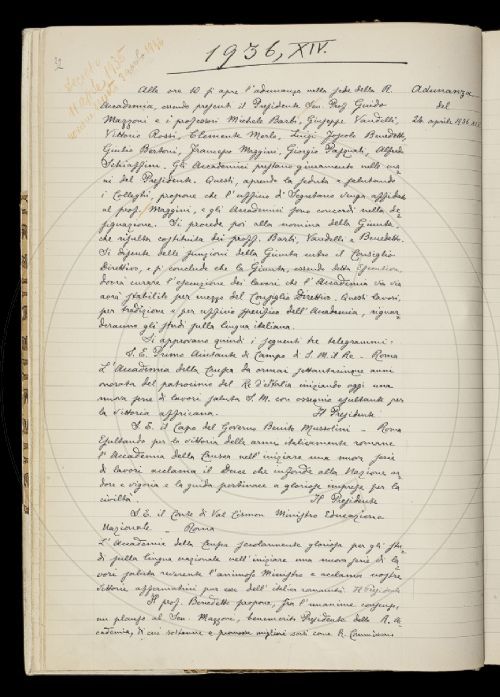 32
1936, XIV.
Adunanza
del
24 aprile 1936. XIV
Alle ore 10 si apre l'adunanza nella sede della R.
Accademia, essendo presenti il Presidente Sen. Prof. Guido
Mazzoni e i professori Michele Barbi, Giuseppe Vandelli,
Vittorio Rossi, Clemente Merlo, Luigi Foscolo Benedetto,
Giulio Bertoni, Francesco Maggini, Giorgio Pasquali, Alfredo
Schiaffini. Gli Accademici prestano giuramento nelle ma-
ni del Presidente. Questi, aprendo la seduta e salutando
i Colleghi, propone che l'ufficio di Segretario venga affidato
al prof. Maggini, e gli Accademici sono concordi nella de-
signazione. Si procede poi alla nomina della Giunta,
che risulta costituita dai proff. Barbi, Vandelli e Benedetto.
Si discute delle funzioni della Giunta entro il Consiglio
Direttivo, e si conclude che la Giunta, essendo detta Esecutiva,
dovrà curare l'esecuzione dei lavori che l'Accademia via via
avrà stabilito per mezzo del Consiglio Direttivo. Questi lavori,
per tradizione e per ufficio specifico dell'Accademia, riguar-
deranno gli studi sulla lingua italiana.
Si approvano quindi i seguenti tre telegrammi:
S. E. Primo Aiutante di Campo di S. M. il Re - Roma
L'Accademia della Crusca da ormai settantacinque anni
onorata del patrocinio del Re d'Italia iniziando oggi una
nuova serie di lavori saluta S. M. con ossequio esultante per
la vittoria affricana. Il Presidente
S. E. il Capo del Governo Benito Mussolini - Roma
Esultando per la vittoria delle armi italicamente romane
l'Accademia della Crusca nell'iniziare una nuova serie
di lavori acclama il Duce che infonde alla Nazione ar-
dore e vigoria e la guida pertinace a gloriose imprese per la
civiltà. Il Presidente
S. E. il Conte di Val Cismon Ministro Educazione
Nazionale - Roma
L'Accademia della Crusca secolarmente gloriosa per gli stu-
di sulla lingua nazionale nell'iniziare una nuova serie di la-
vori saluta reverente l'animoso Ministro e acclama nostre
vittorie affermatrici pur esse dell'italica romanità. Il Presidente
Il prof. Benedetto propone, fra l'unanime consenso,
un plauso al Sen. Mazzoni, benemerito Presidente della R. Ac-
cademia, di cui sostenne e promosse migliori sorti come R. Commissario